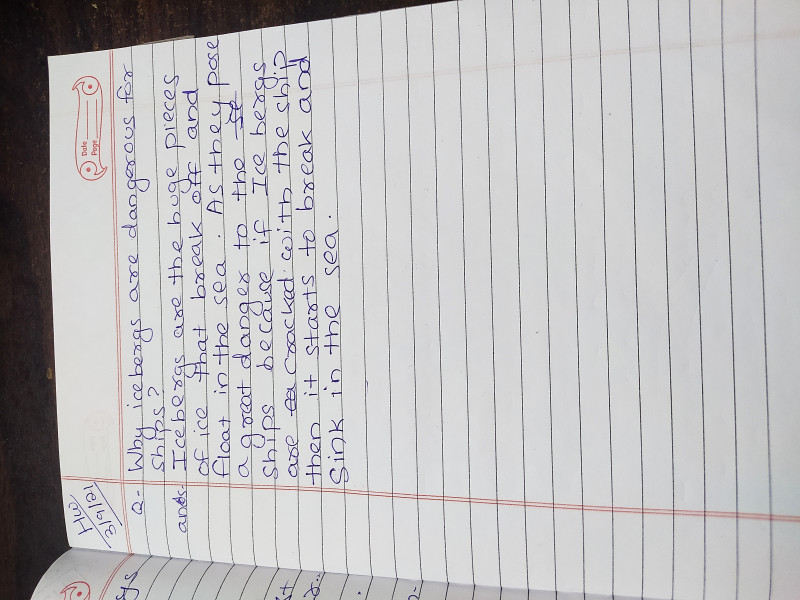 Date
Page
H.W
3/9/21
Q- Why icebergs are dangerous for
ships?
ans- Icebergs are the huge pieces
of ice that break off and
float in the sea. As they pose
a great danger to the
ships because if Ice bergs
are cracked with the ship
then it starts to break and
Sink in the sea.